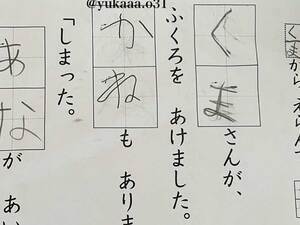 @yukaaa.o31
くまから、えらんで
くまさんが、
ふくろを あけました。
かねも ありま
「しまった。
あながあい